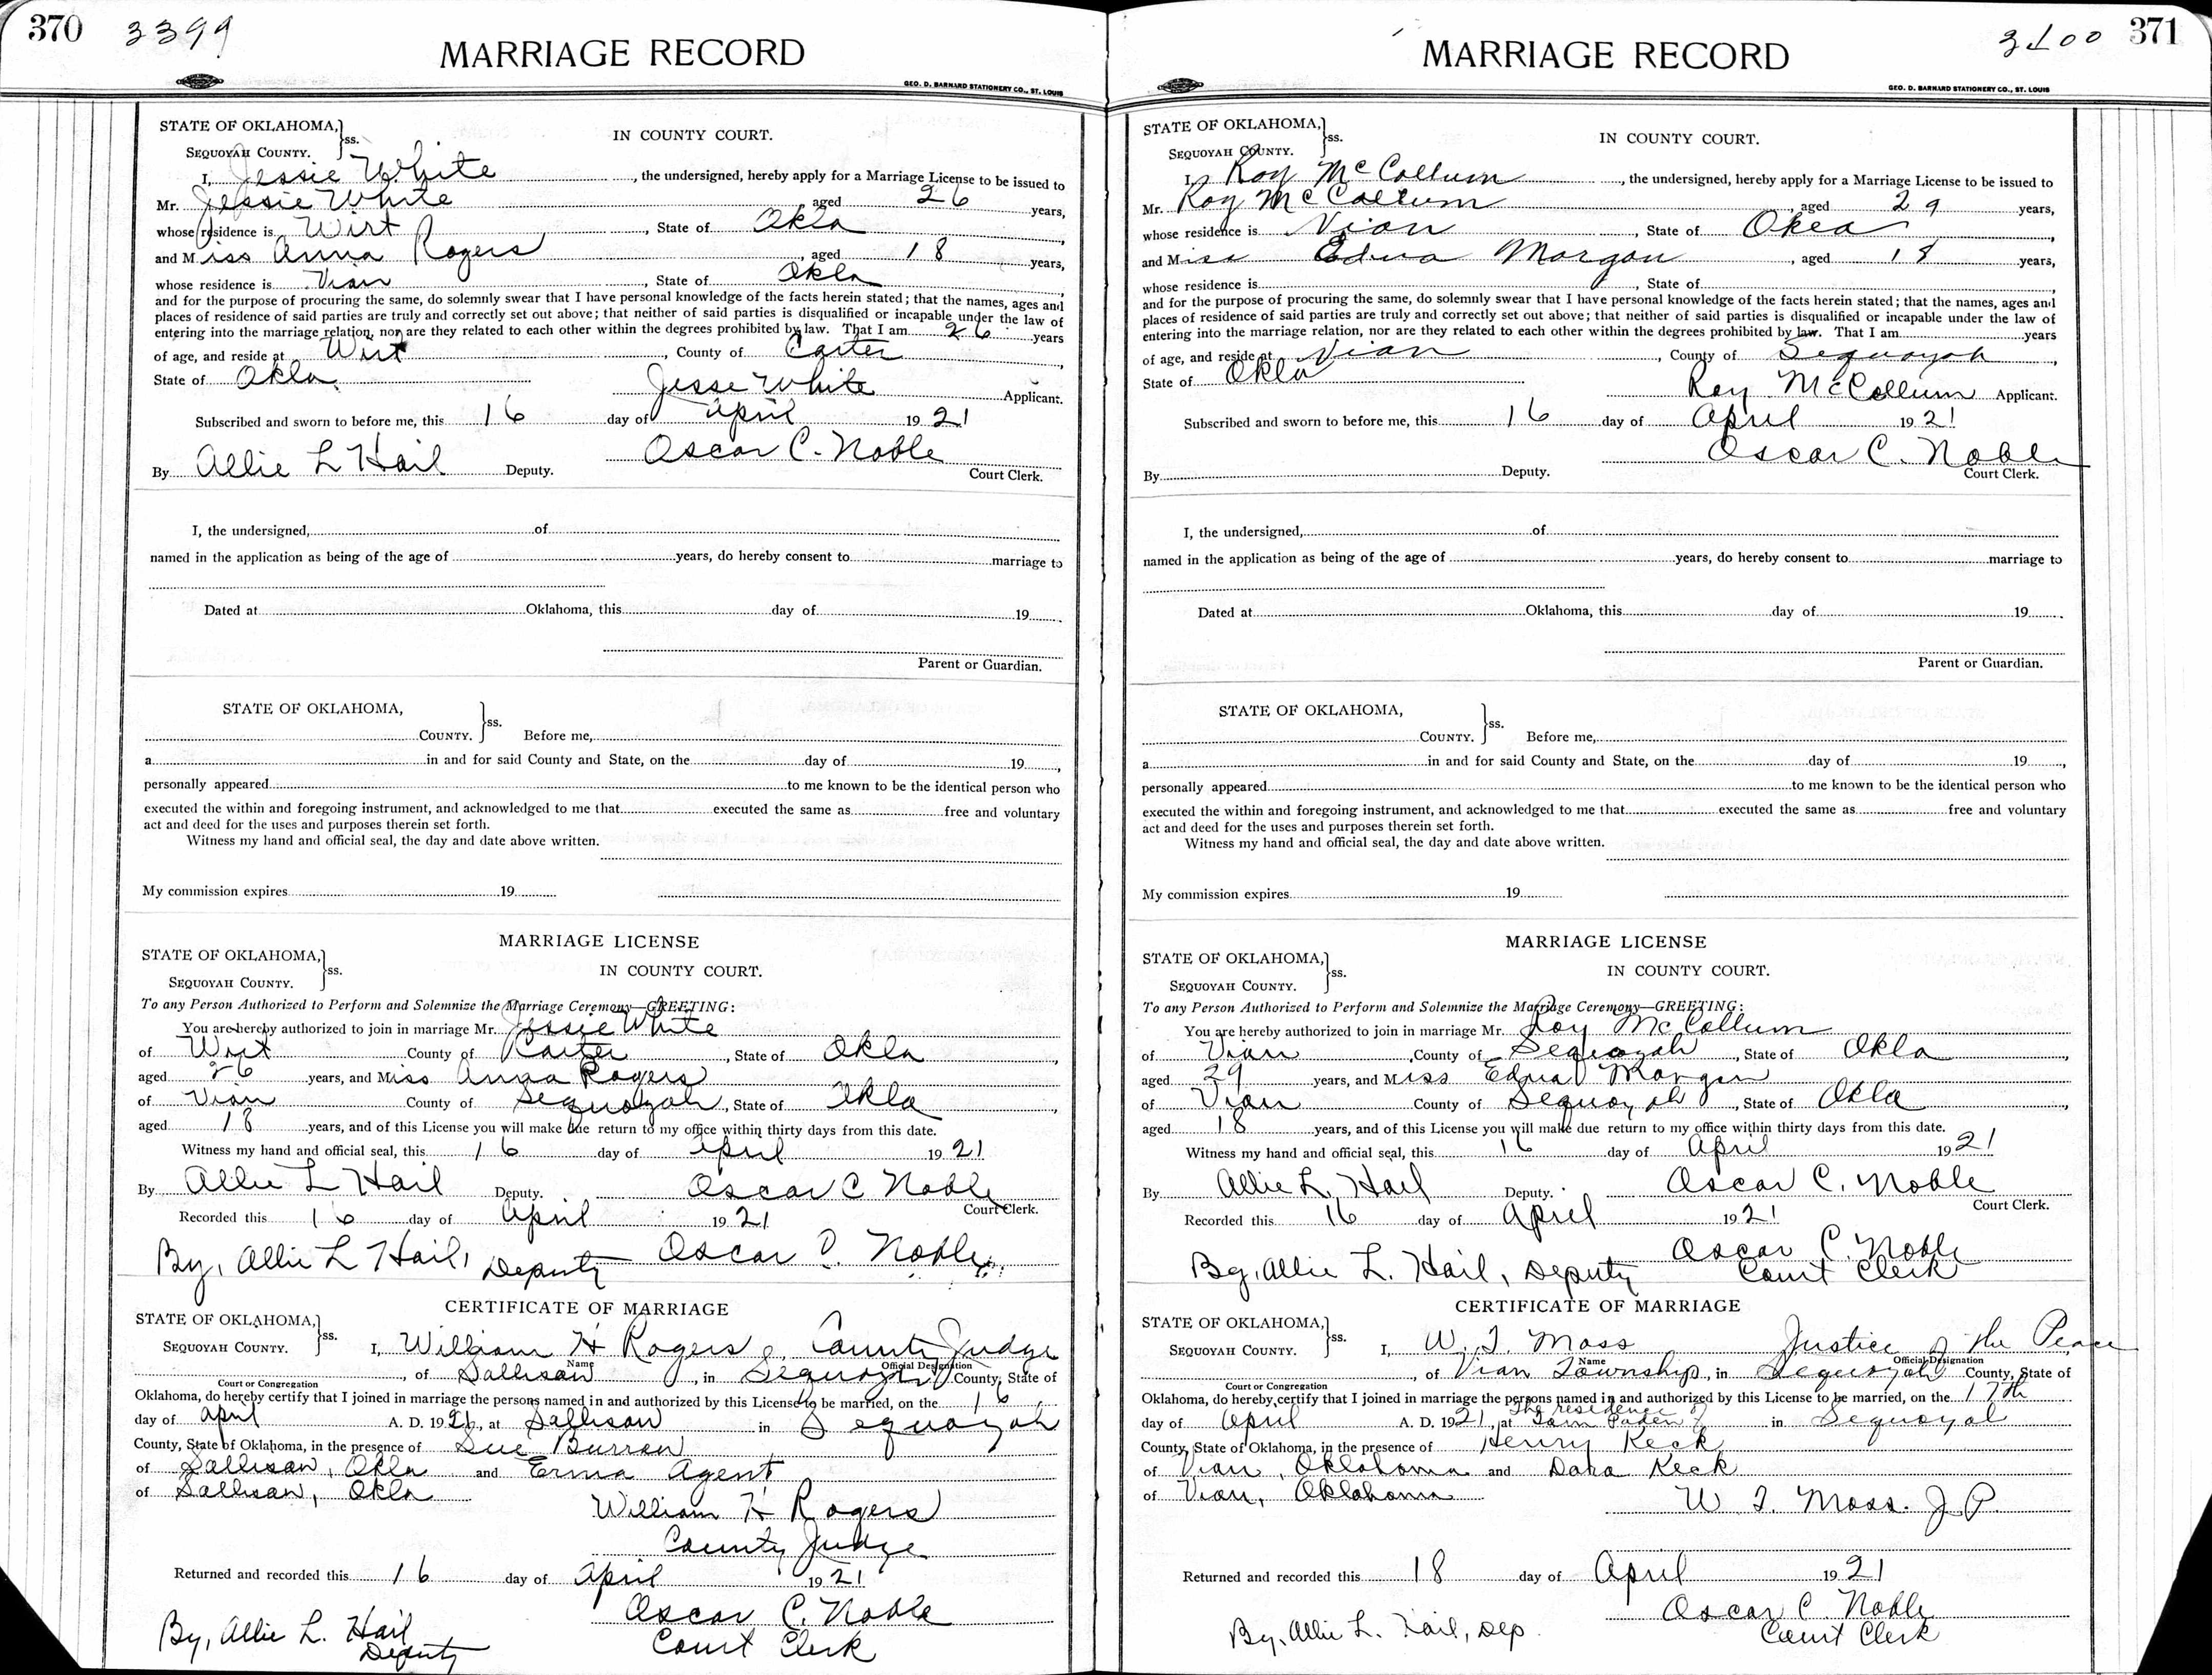 370 3399
MARRIAGE RECORD
GEO. D. BARNARD STATIONERY CO., ST. LOUIS
STATE OF OKLAHOMA, } ss. IN COUNTY COURT.
SEQUOYAH COUNTY.
I, Jessie White, the undersigned, hereby apply for a Marriage License to be issued to
Mr. Jessie White aged 26 years,
whose residence is Wirt, State of Okla,
and Miss Anna Rogers, aged 18 years,
whose residence is Vian, State of Okla,
and for the purpose of procuring the same, do solemnly swear that I have personal knowledge of the facts herein stated; that the names, ages and
places of residence of said parties are truly and correctly set out above; that neither of said parties is disqualified or incapable under the law of
entering into the marriage relation, nor are they related to each other within the degrees prohibited by law. That I am 26 years
of age, and reside at Wirt, County of Carter,
State of Okla. Jesse White Applicant.
Subscribed and sworn to before me, this 16 day of April 1921
Oscar C. Noble
By Allie L Hail Deputy. Court Clerk.
I, the undersigned, of
named in the application as being of the age of years, do hereby consent to marriage to
Dated at Oklahoma, this day of 19
Parent or Guardian.
STATE OF OKLAHOMA, } ss.
COUNTY. Before me,
a in and for said County and State, on the day of 19,
personally appeared to me known to be the identical person who
executed the within and foregoing instrument, and acknowledged to me that executed the same as free and voluntary
act and deed for the uses and purposes therein set forth.
Witness my hand and official seal, the day and date above written.
My commission expires 19
MARRIAGE LICENSE
STATE OF OKLAHOMA, } ss. IN COUNTY COURT.
SEQUOYAH COUNTY.
To any Person Authorized to Perform and Solemnize the Marriage Ceremony—GREETING:
You are hereby authorized to join in marriage Mr. Jessie White
of Wirt County of Carter, State of Okla,
aged 26 years, and Miss Anna Rogers
of Vian County of Sequoyah, State of Okla,
aged 18 years, and of this License you will make due return to my office within thirty days from this date.
Witness my hand and official seal, this 16 day of April 1921
By Allie L Hail Deputy. Oscar C Noble
Court Clerk.
Recorded this 16 day of April 1921
By, Allie L Hail, Deputy Oscar C. Noble
CERTIFICATE OF MARRIAGE
STATE OF OKLAHOMA, } ss.
SEQUOYAH COUNTY. I, William H Rogers, County Judge
Name Official Designation
, of Sallisaw, in Sequoyah County, State of
Court or Congregation
Oklahoma, do hereby certify that I joined in marriage the persons named in and authorized by this License to be married, on the 16
day of April A. D. 1921, at Sallisaw in Sequoyah
County, State of Oklahoma, in the presence of Sue Burrow
of Sallisaw, Okla and Erma Agent
of Sallisaw, Okla
William H Rogers
County Judge
Returned and recorded this 16 day of April 1921
Oscar C. Noble
By, Allie L. Hail Court Clerk
Deputy
3400 371
MARRIAGE RECORD
GEO. D. BARNARD STATIONERY CO., ST. LOUIS
STATE OF OKLAHOMA, } ss. IN COUNTY COURT.
SEQUOYAH COUNTY.
I, Roy McCollum, the undersigned, hereby apply for a Marriage License to be issued to
Mr. Roy McCollum, aged 29 years,
whose residence is Vian, State of Okla,
and Miss Edna Morgan, aged 18 years,
whose residence is, State of
and for the purpose of procuring the same, do solemnly swear that I have personal knowledge of the facts herein stated; that the names, ages and
places of residence of said parties are truly and correctly set out above; that neither of said parties is disqualified or incapable under the law of
entering into the marriage relation, nor are they related to each other within the degrees prohibited by law. That I am years
of age, and reside at Vian, County of Sequoyah,
State of Okla Roy McCollum Applicant.
Subscribed and sworn to before me, this 16 day of April 1921
Oscar C. Noble
By Deputy. Court Clerk.
I, the undersigned, of
named in the application as being of the age of years, do hereby consent to marriage to
Dated at Oklahoma, this day of 19
Parent or Guardian.
STATE OF OKLAHOMA, } ss.
COUNTY. Before me,
a in and for said County and State, on the day of 19,
personally appeared to me known to be the identical person who
executed the within and foregoing instrument, and acknowledged to me that executed the same as free and voluntary
act and deed for the uses and purposes therein set forth.
Witness my hand and official seal, the day and date above written.
My commission expires 19
MARRIAGE LICENSE
STATE OF OKLAHOMA, } ss. IN COUNTY COURT.
SEQUOYAH COUNTY.
To any Person Authorized to Perform and Solemnize the Marriage Ceremony—GREETING:
You are hereby authorized to join in marriage Mr. Roy McCollum
of Vian, County of Sequoyah, State of Okla,
aged 29 years, and Miss Edna Morgan
of Vian County of Sequoyah, State of Okla,
aged 18 years, and of this License you will make due return to my office within thirty days from this date.
Witness my hand and official seal, this 16 day of April 1921
By Allie L. Hail Deputy. Oscar C. Noble
Court Clerk.
Recorded this 16 day of April 1921
Oscar C. Noble
By, Allie L. Hail, Deputy Court Clerk
CERTIFICATE OF MARRIAGE
STATE OF OKLAHOMA, } ss.
SEQUOYAH COUNTY. I, W. T. Moss Justice of the Peace
Name Official Designation
, of Vian Township, in Sequoyah County, State of
Court or Congregation
Oklahoma, do hereby certify that I joined in marriage the persons named in and authorized by this License to be married, on the 17th
day of April A. D. 1921, at The residence of Sam Paden in Sequoyah
County, State of Oklahoma, in the presence of Henry Keck
of Vian, Oklahoma and Dora Keck
of Vian, Oklahoma
W. T. Moss. J P.
Returned and recorded this 18 day of April 1921
Oscar C. Noble
By, Allie L. Hail, Dep. Court Clerk